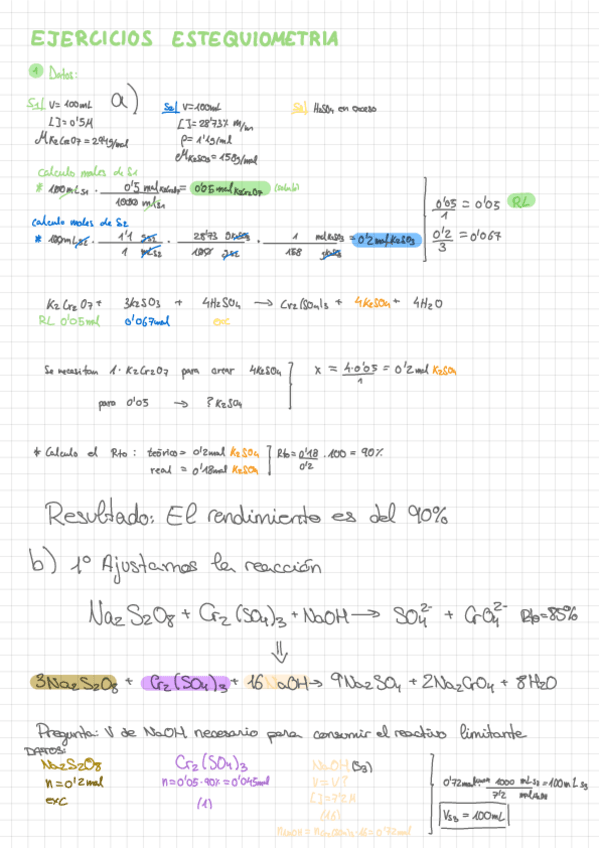 EJERCICIOS ESTEQUIOMETRIA
1 Datos:
a)
S1/ V= 100mL
[ ]= 0'5M
MK2Cr2O7 = 294g/mol
S2/ V=100mL
[ ]= 28'73% m/m
ρ= 1'1g/ml
MK2SO3 = 158g/mol
H2SO4 en exceso
Calculo moles de S1
* 100mL S1 · 0'5 mol K2Cr2O7 / 1000 mL S1 = 0'05 mol K2Cr2O7
calculo moles de S2
* 100mL S2 · 1'1 g S2 / 1 mL S2 · 28'73 g K2SO3 / 100 g S2 · 1 mol K2SO3 / 158 g K2SO3 = 0'2 mol K2SO3
0'05/1 = 0'05 RL
0'2/3 = 0'067
K2Cr2O7 + 3K2SO3 + 4H2SO4 → Cr2(SO4)3 + 4K2SO4 + 4H2O
RL 0'05mol 0'067mol exc
Se necesitan 1 · K2Cr2O7 para crear 4K2SO4
para 0'05 → ? K2SO4
x = 4·0'05/1 = 0'2 mol K2SO4
* Calculo el Rto: teórico = 0'2mol K2SO4
real = 0'18mol K2SO4
Rto = 0'18/0'2 · 100 = 90%
Resultado: El rendimiento es del 90%
b) 1º Ajustamos la reacción
Na2S2O8 + Cr2(SO4)3 + NaOH → SO4²⁻ + CrO4²⁻ Rto=85%
⇓
3Na2S2O8 + Cr2(SO4)3 + 16 NaOH → 9Na2SO4 + 2Na2CrO4 + 8H2O
Pregunta: V de NaOH necesario para consumir el reactivo limitante
DATOS:
Na2S2O8
n = 0'2mol
exc
Cr2(SO4)3
n = 0'05·90% = 0'045mol
(1)
NaOH (S3)
V = V?
[ ]= 7'2M
(16)
nNaOH = nCr2(SO4)3·16 = 0'72mol
0'72mol NaOH · 1000 mL S3 / 7'2 mol NaOH = 100mL S3
VS3 = 100mL